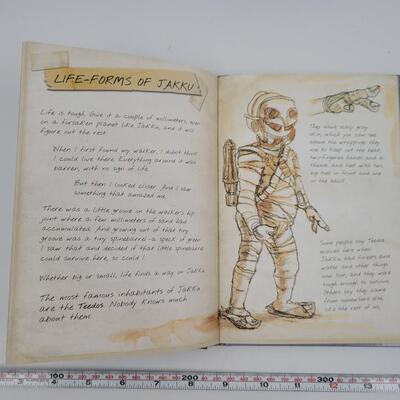 LIFE-FORMS OF JAKKU
Life is tough. Give it a couple of millimeters, even
on a forsaken planet like Jakku, and it will
figure out the rest.
When I first found my walker, I didn't think
I could live there. Everything around it was
barren, with no sign of life.
But then I looked closer. And I saw
something that amazed me.
There was a little groove on the walker's hip
joint where a few millimeters of sand had
accumulated. And growing out of that tiny
groove was a tiny spinebarrel—a speck of green.
I saw that and decided if that little spinebarrel
could survive here, so could I.
Whether big or small, life finds a way on Jakku.
The most famous inhabitants of Jakku
are the Teedos. Nobody knows much
about them.
They have scaly gray
skin, which you can see
above the wrappings they
use to keep out the sand,
two-fingered hands and a
thumb, and feet with two
big toes in front and one
in the back.
Some people say Teedos
evolved here when
Jakku had forests and
water and other things
now lost, and they were
tough enough to survive.
Others say they came
from somewhere else,
like the rest of us.
100
200
300
3
4
5
6
7
8
9
10
11
12
13